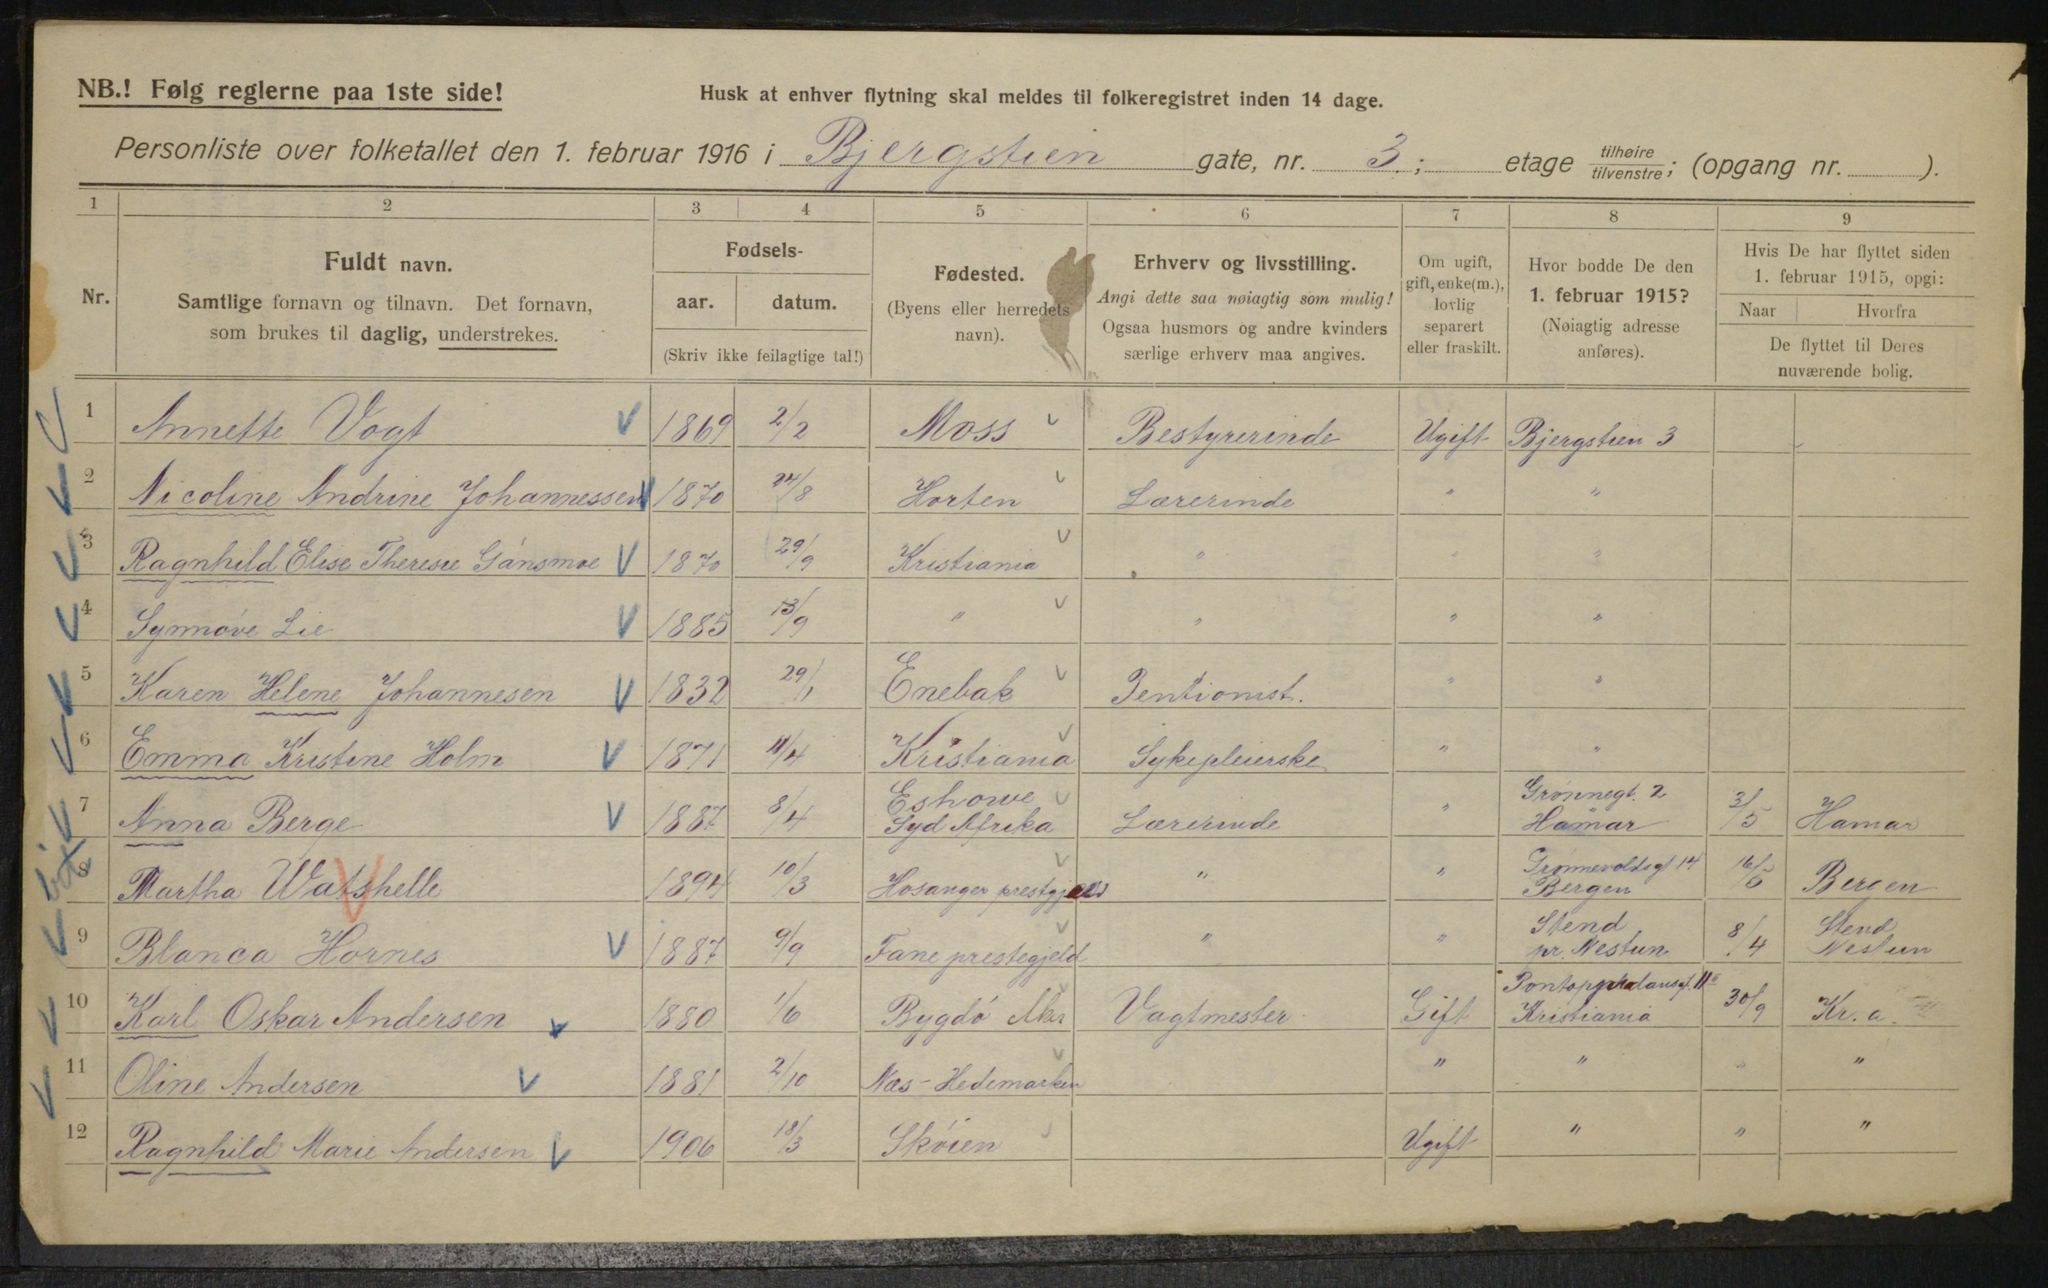 NB.! Følg reglerne paa 1ste side!
Husk at enhver flytning skal meldes til folkeregistret inden 14 dage.
Personliste over folketallet den 1. februar 1916 i Bjergstien gate, nr. 3.; etage tilhøire/tilvenstre; (opgang nr. ).
1 2 3 4 5 6 7 8 9
Nr.
Fuldt navn.
Samtlige fornavn og tilnavn. Det fornavn,
som brukes til daglig, understrekes.
Fødsels-
aar. datum.
(Skriv ikke feilagtige tal!)
Fødested.
(Byens eller herredets
navn).
Erhverv og livsstilling.
Angi dette saa nøiagtig som mulig!
Ogsaa husmors og andre kvinders
særlige erhverv maa angives.
Om ugift,
gift, enke(m.),
lovlig
separert
eller fraskilt.
Hvor bodde De den
1. februar 1915?
(Nøiagtig adresse
anføres).
Hvis De har flyttet siden
1. februar 1915, opgi:
Naar Hvorfra
De flyttet til Deres
nuværende bolig.
1 Annette Vogt 1869 2/2 Moss Bestyrerinde Ugift Bjergstien 3
2 Nicoline Andrine Johannessen 1870 24/8 Horten Lærerinde " "
3 Ragnhild Elise Therese Gånsmoe 1870 29/9 Kristiania " " "
4 Synnøve Lie 1885 13/9 " " " "
5 Karen Helene Johannesen 1832 29/1 Enebak Pentionist. " "
6 Emma Kristine Holm 1871 11/4 Kristiania Sykepleierske " "
7 Anna Berge 1887 8/4 Eshowe Syd Afrika Lærerinde " Grønnegt. 2 Hamar 3/5 Hamar
8 Martha Watshelle 1894 10/3 Hosanger prestgjeld " " 14 Bergen 16/5 Bergen
9 Blanca Hornes 1887 9/9 Fane prestegjeld " " Stend pr. Nestun 8/4 Stend Nestun
10 Karl Oskar Andersen 1880 1/6 Bygdö Aker Vagtmester Gift Pontoppidansgt. 11 Kristiania 30/9 Kr.a.
11 Oline Andersen 1881 2/10 Næs-Hedemarken " " " "
12 Ragnhild Marie Andersen 1906 18/3 Sköien Ugift " " "